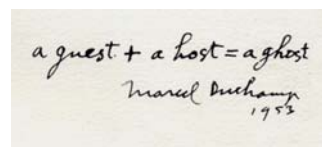 a guest + a host = a ghost
Marcel Duchamp
1953